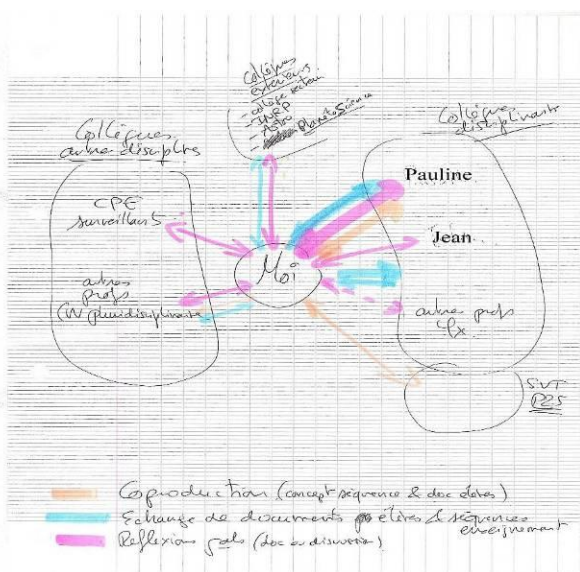 Collègues
extérieurs
- collège secteur
- INRP
- Astro
- Planète Science
Collègues
autre disciplines
CPE
surveillants
autres
profs
pluridisciplinaire
Moi
Collègues
disciplinaires
Pauline
Jean
autre profs
SVT
P2S
Coproduction (concept séquence & doc élèves)
Echange de documents élèves & séquences
enseignement
Réflexions (doc ou discussion)